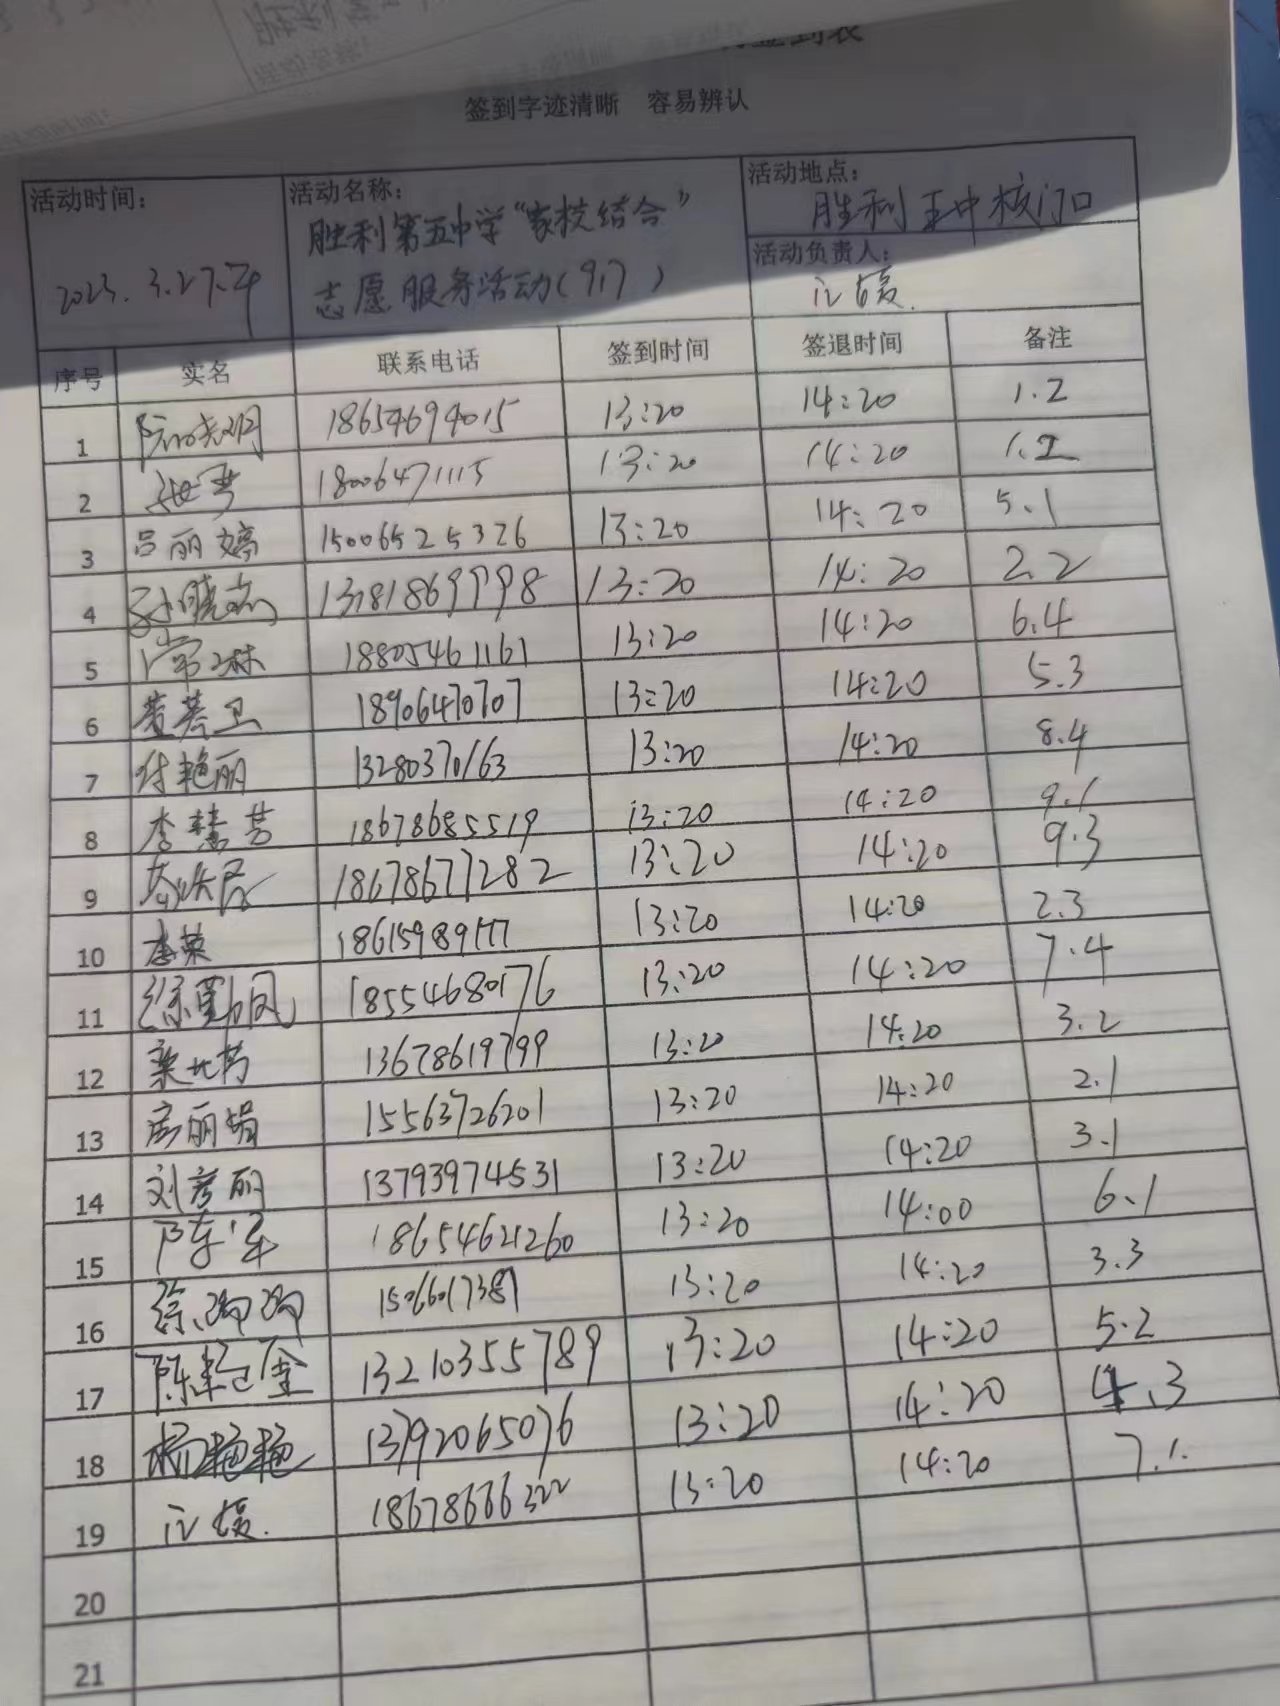 签到字迹清晰 容易辨认
活动时间：
2023.3.27.下午
活动名称：
胜利第五中学“家校结合”
志愿服务活动(9.17)
活动地点：
胜利五中校门口
活动负责人：
序号 实名 联系电话 签到时间 签退时间 备注
1 18654694015 13:20 14:20 1.2
2 18006471115 13:20 14:20 1.2
3 吕丽婷 15006525326 13:20 14:20 5.1
4 13:20 14:20 2.2
5 常琳 18805461161 13:20 14:20 6.4
6 18906470707 13:20 14:20 5.3
7 付艳丽 13280370163 13:20 14:20 8.4
8 李慧芳 18678685519 13:20 14:20 9.1
9 18678677282 13:20 14:20 9.3
10 李荣 13:20 14:20 2.3
11 徐勤凤 18554680176 13:20 14:20 7.4
12 13678619799 13:20 14:20 3.2
13 房丽娟 15563726201 13:20 14:20 2.1
14 刘彦丽 13793974531 13:20 14:20 3.1
15 18654621260 13:20 14:00 6.1
16 13:20 14:20 3.3
17 13210355789 13:20 14:20 5.2
18 杨艳艳 13792065076 13:20 14:20 4.3
19 18678666322 13:20 14:20 7.1
20
21